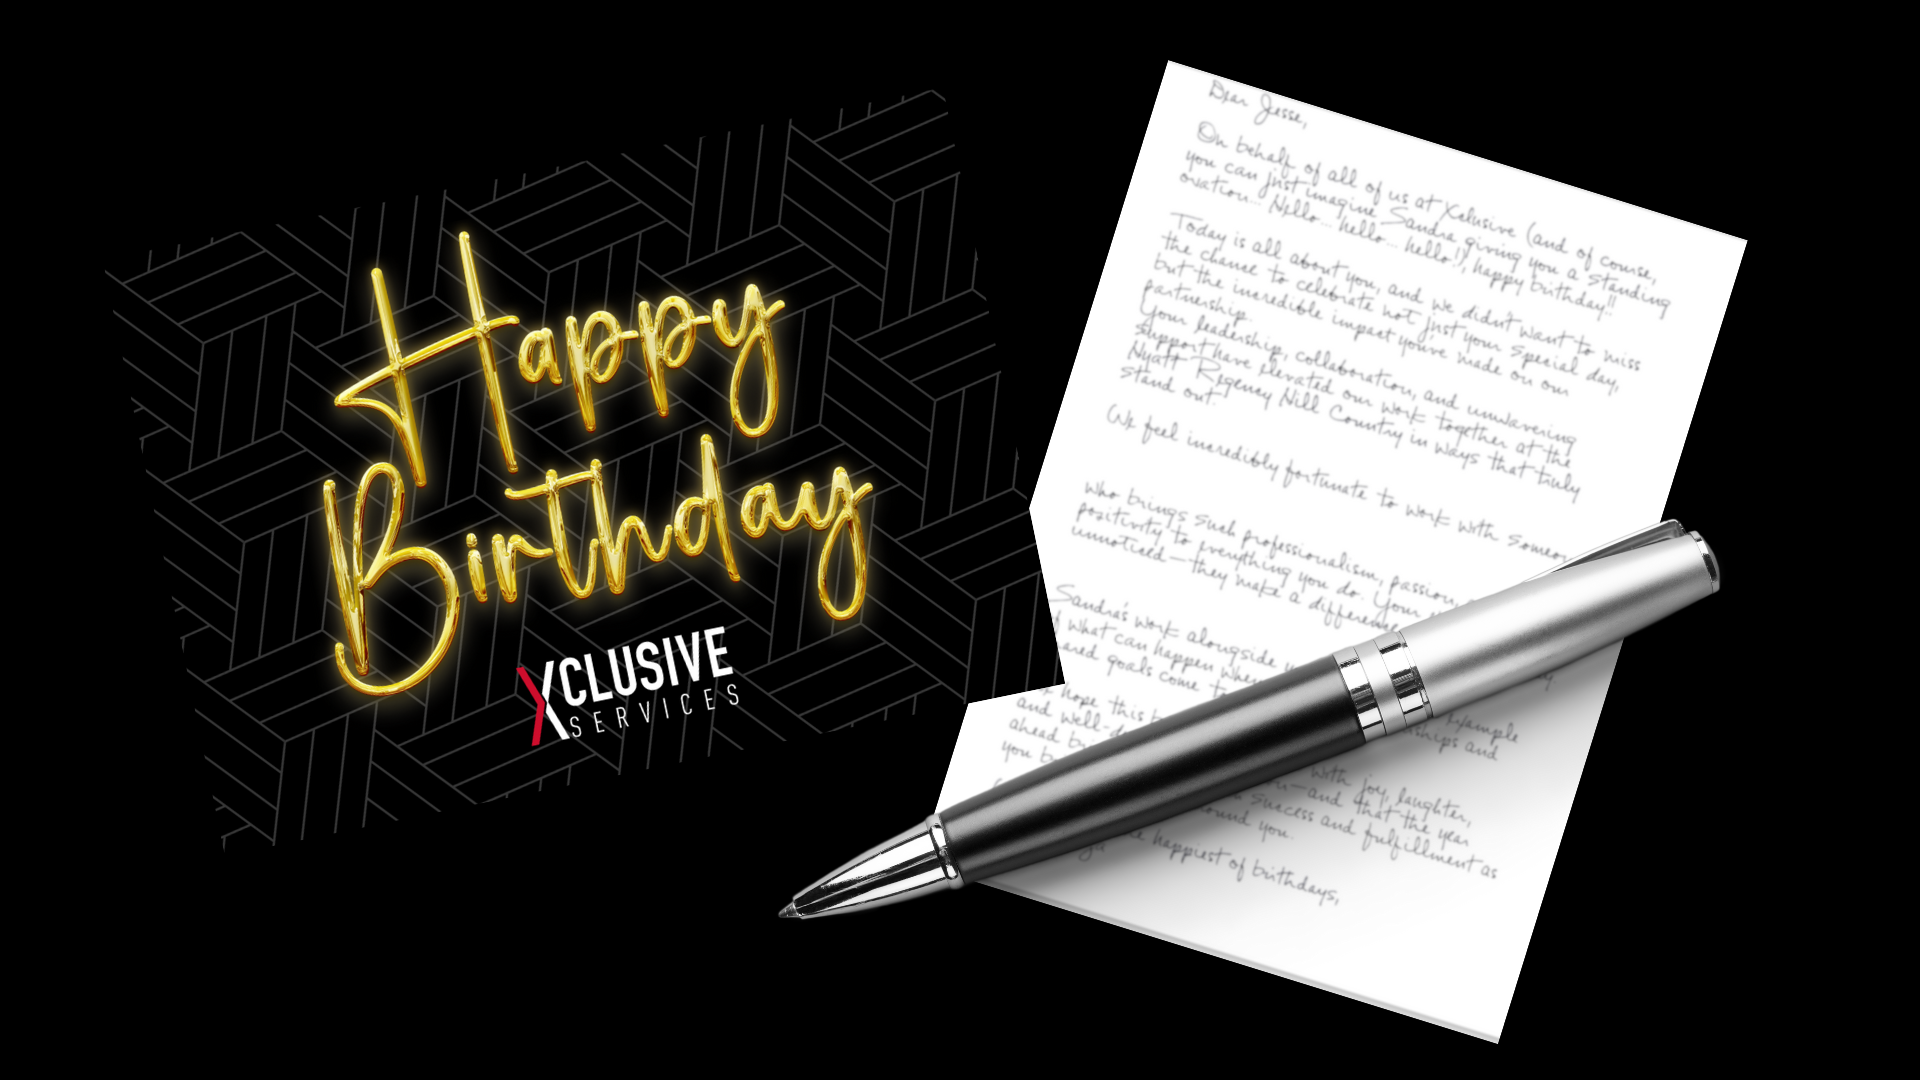 Happy
Birthday
XCLUSIVE
SERVICES
Dear Jesse,
On behalf of all of us at Xclusive (and of course,
you can just imagine Sandra giving you a standing
ovation... Hello... hello... hello!), happy birthday!!
Today is all about you, and we didn't want to miss
the chance to celebrate not just your special day,
but the incredible impact you've made on our
partnership.
Your leadership, collaboration, and unwavering
support have elevated our work together at the
Hyatt Regency Hill Country in ways that truly
stand out.
We feel incredibly fortunate to work with
who brings such professionalism, passion,
positivity to everything you do. Your
unnoticed—they make a difference
Sandra's work alongside
what can happen when
goals come example
hope this and
and well-d
ahead with joy, laughter,
you and that the year
success and fulfillment as
you.
happiest of birthdays,